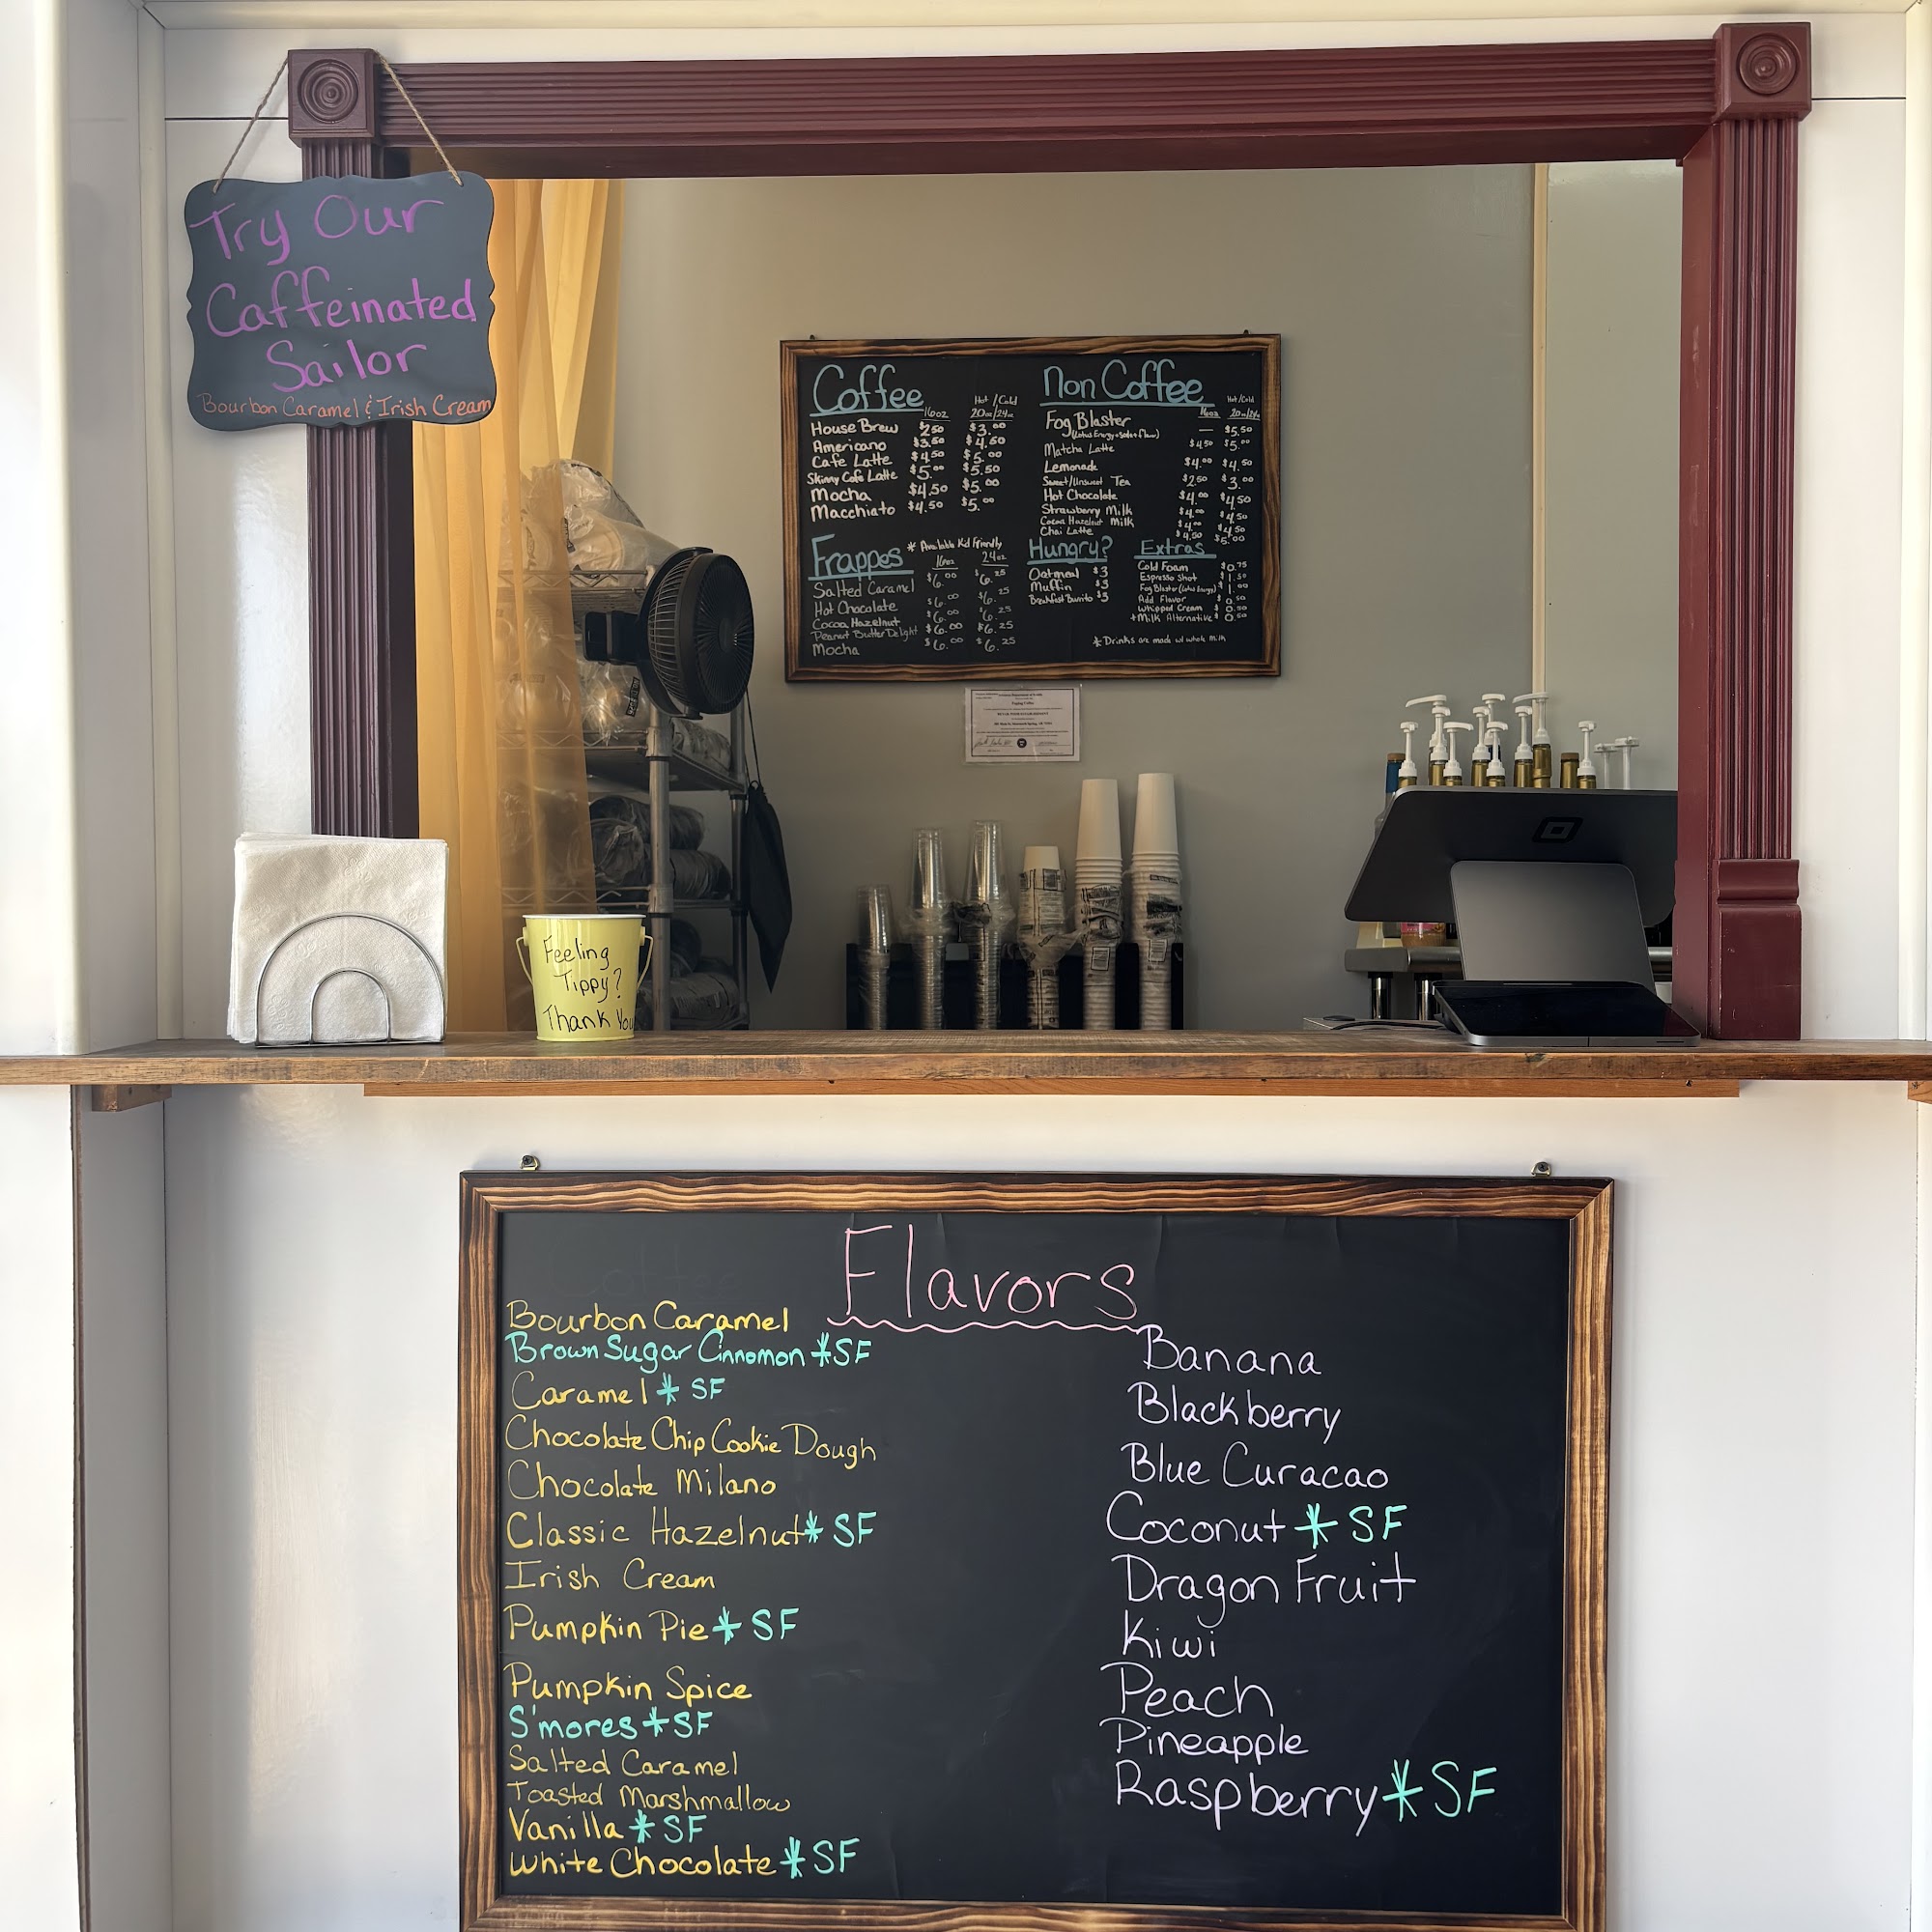 Try Our
Caffeinated
Sailor
Bourbon Caramel & Irish Cream
Coffee
Hot / Cold
16oz 20oz/24oz
House Brew $2.50 $3.00
Americano $3.50 $4.50
Cafe Latte $4.50 $5.00
Skinny Cafe Latte $5.00 $5.50
Mocha $4.50 $5.00
Macchiato $4.50 $5.00
Non Coffee
Hot/Cold
16oz 20oz/24oz
Fog Blaster — $5.50
(Lotus Energy+soda+flavor)
Matcha Latte $4.50 $5.00
Lemonade $4.00 $4.50
Sweet/Unsweet Tea $2.50 $3.00
Hot Chocolate $4.00 $4.50
Strawberry Milk $4.00 $4.50
Cocoa Hazelnut Milk $4.00 $4.50
Chai Latte $4.50 $5.00
Frappes * Available Kid Friendly
16oz 24oz
Salted Caramel $6.00 $6.25
Hot Chocolate $6.00 $6.25
Cocoa Hazelnut $6.00 $6.25
Peanut Butter Delight $6.00 $6.25
Mocha $6.00 $6.25
Hungry?
Oatmeal $3
Muffin $3
Breakfast Burrito $3
Extras
Cold Foam $0.75
Espresso Shot $1.50
Fog Blaster (Lotus Energy) $1.00
Add Flavor $0.50
Whipped Cream $0.50
+Milk Alternative $0.50
* Drinks are made w/ whole milk
Feeling
Tippy?
Thank You
Flavors
Bourbon Caramel
Brown Sugar Cinnomon *SF
Caramel * SF
Chocolate Chip Cookie Dough
Chocolate Milano
Classic Hazelnut * SF
Irish Cream
Pumpkin Pie * SF
Pumpkin Spice
S'mores *SF
Salted Caramel
Toasted Marshmallow
Vanilla *SF
White Chocolate *SF
Banana
Blackberry
Blue Curacao
Coconut * SF
Dragon Fruit
Kiwi
Peach
Pineapple
Raspberry * SF